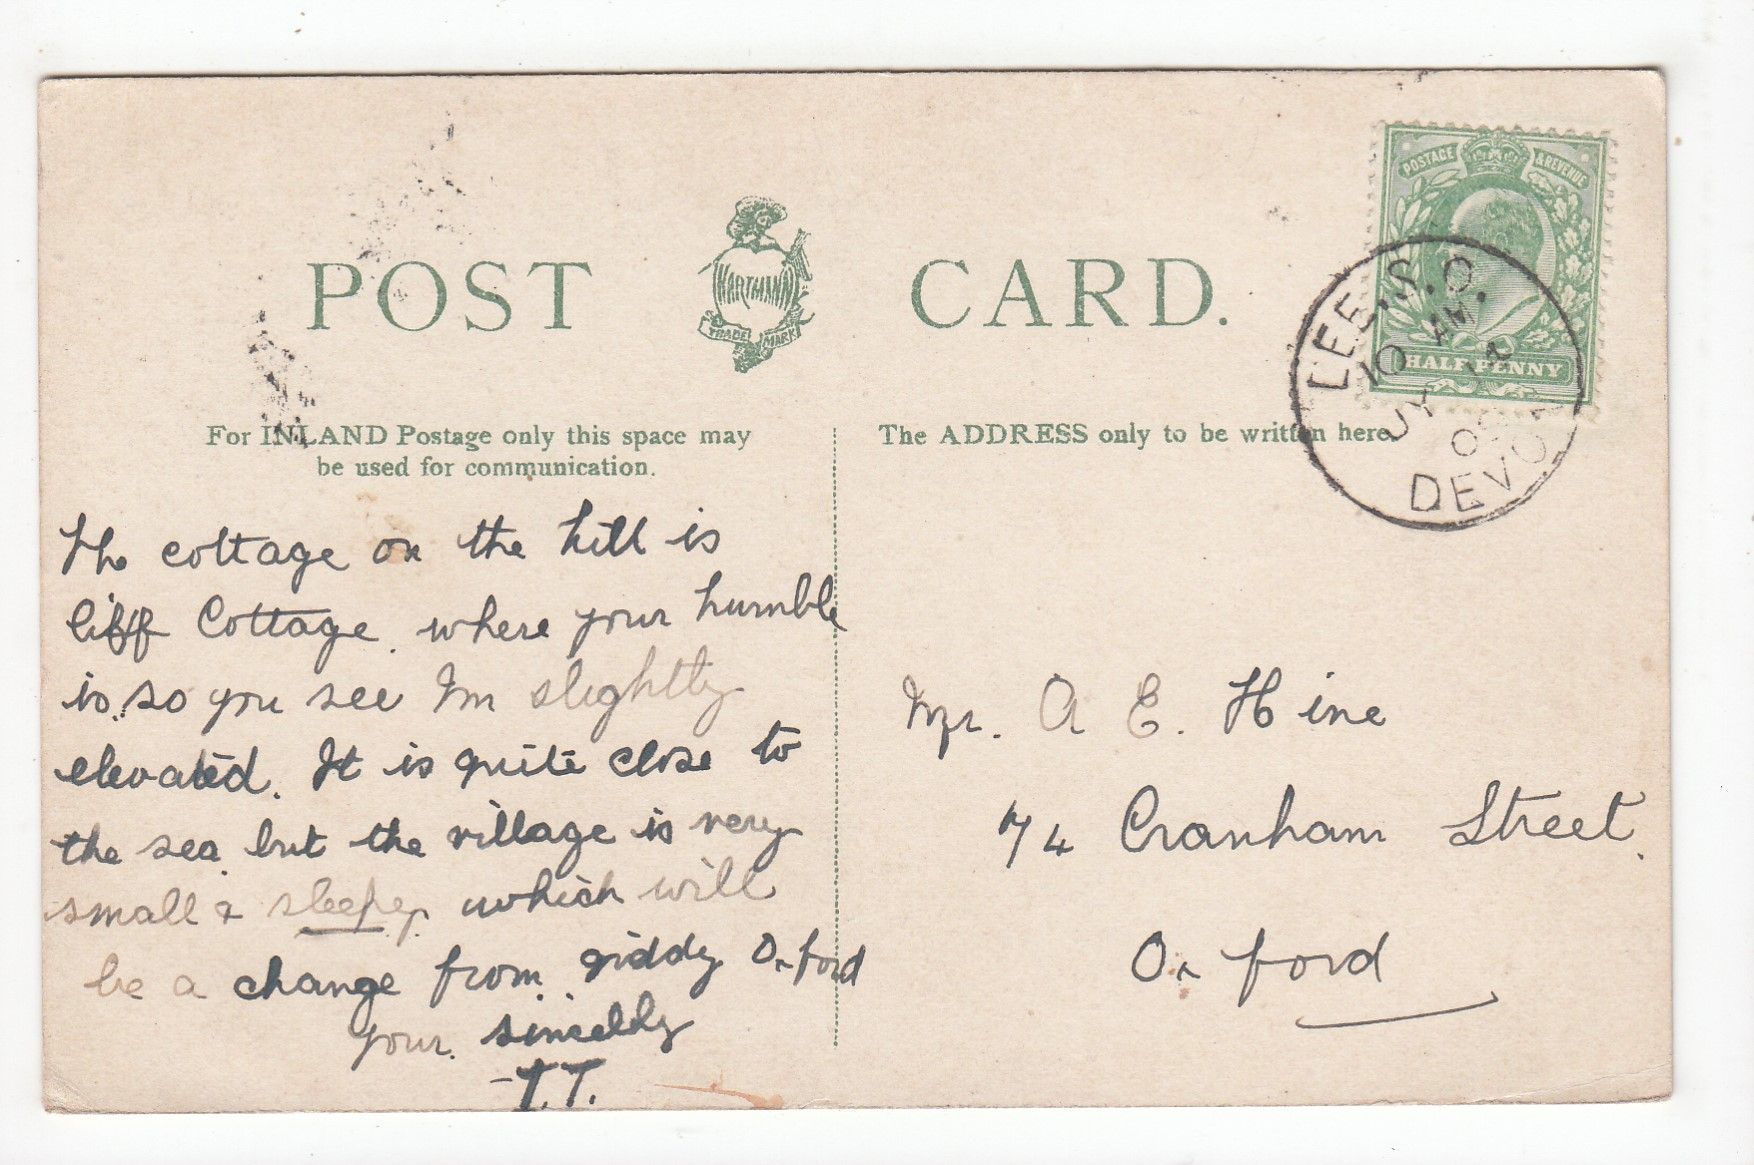 POST CARD.
HARTMANN
TRADE MARK
POSTAGE & REVENUE
HALFPENNY
LEE. S.O.
10 AM
JY 14
DEVON
For INLAND Postage only this space may
be used for communication.
The ADDRESS only to be written here.
The cottage on the hill is
Cliff Cottage where your humble
is. so you see I'm slightly
elevated. It is quite close to
the sea but the village is very
small & sleepy which will
be a change from giddy Oxford
your sincelly
T.T.
Mr. A E. Hine
74 Cranham Street.
Oxford